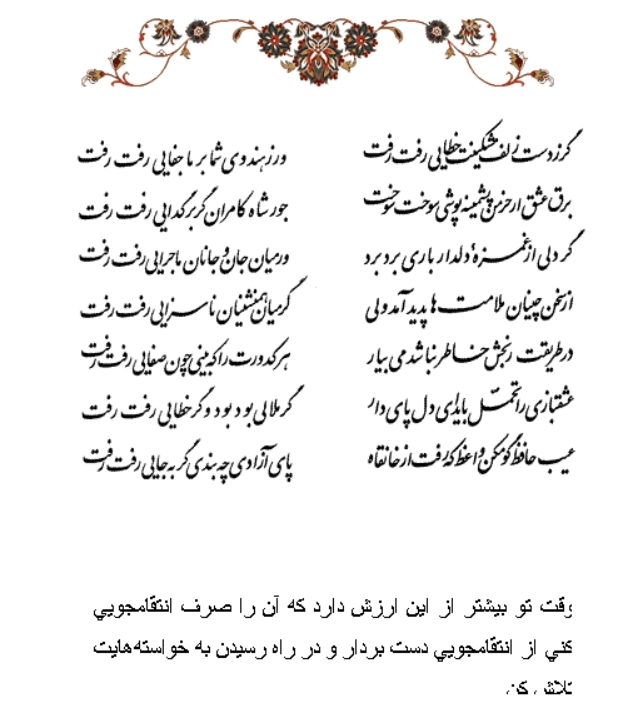 گر ز دست زلف مشکینت خطایی رفت رفت ور ز هندوی شما بر ما جفایی رفت رفت
برق عشق ار خرمن پشمینه پوشی سوخت سوخت جور شاه کامران گر بر گدایی رفت رفت
گر دلی از غمزهٔ دلدار باری برد برد ور میان جان و جانان ماجرایی رفت رفت
از سخن چینان ملامت‌ها پدید آمد ولی گر میان همنشینان ناسزایی رفت رفت
در طریقت رنجش خاطر نباشد می بیار هر کدورت را که بینی چون صفایی رفت رفت
عشقبازی را تحمّل باید ای دل پای دار گر ملالی بود بود و گر خطایی رفت رفت
عیب حافظ گو مکن واعظ که رفت از خانقاه پای آزادی چه بندی گر به جایی رفت رفت
وقت تو بیشتر از این ارزش دارد که آن را صرف انتقامجویي
کني از انتقامجویي دست بردار و در راه رسیدن به خواسته‌هایت
تلاش کن.